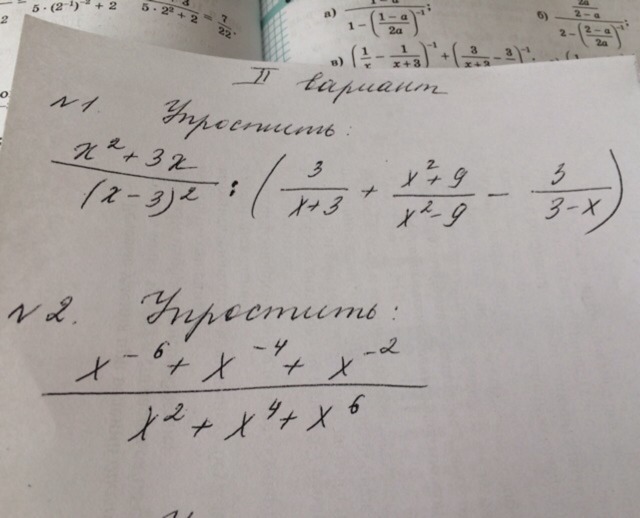 5·(2⁻¹)⁻² + 2
5·2² + 2 = 7/22.
а) 1 − ((1−a)/(2a))⁻¹ ;
б) 2a/(2−a)
2 − ((2−a)/(2a))⁻¹
в) (1/x − 1/(x+3))⁻¹ + (3/(x+2) − 3/
II вариант
N1. Упростить:
(x² + 3x)/(x − 3)² : (3/(x+3) + (x² + 9)/(x² − 9) − 3/(3 − x))
N2. Упростить:
(x⁻⁶ + x⁻⁴ + x⁻²)/(x² + x⁴ + x⁶)